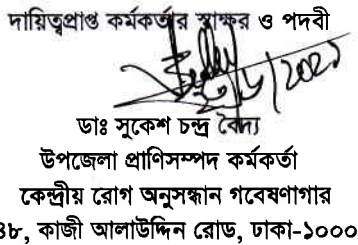 দায়িত্বপ্রাপ্ত কর্মকর্তার স্বাক্ষর ও পদবী
ডাঃ সুকেশ চন্দ্র বৈদ্য
উপজেলা প্রাণিসম্পদ কর্মকর্তা
কেন্দ্রীয় রোগ অনুসন্ধান গবেষণাগার
৪৮, কাজী আলাউদ্দিন রোড, ঢাকা-১০০০